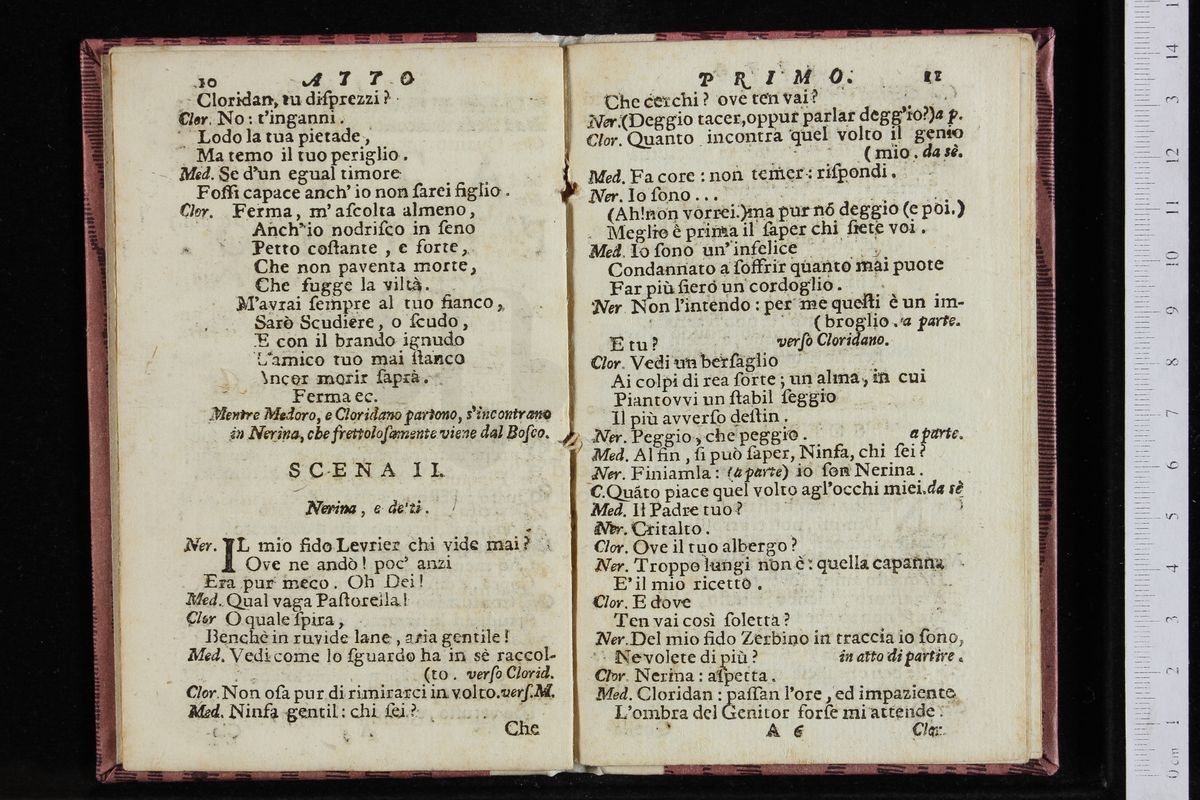 10 ATTO
Cloridan, tu disprezzi?
Clor. No: t'inganni.
Lodo la tua pietade,
Ma temo il tuo periglio.
Med. Se d'un egual timore
Fossi capace anch' io non sarei figlio.
Clor. Ferma, m' ascolta almeno,
Anch' io nodrisco in seno
Petto costante, e forte,
Che non paventa morte,
Che fugge la viltà.
M'avrai sempre al tuo fianco,
Sarò Scudiere, o scudo,
E con il brando ignudo
L'amico tuo mai stanco
Ancor morir saprà.
Ferma ec.
Mentre Medoro, e Cloridano partono, s'incontrano
in Nerina, che frettolosamente viene dal Bosco.
SCENA II.
Nerina, e de'ti.
Ner. IL mio fido Levrier chi vide mai?
Ove ne andò! poc' anzi
Era pur meco. Oh Dei!
Med. Qual vaga Pastorella!
Clor O quale spira,
Benchè in ruvide lane, aria gentile!
Med. Vedi come lo sguardo ha in sè raccol-
(to. verso Clorid.
Clor. Non osa pur di rimirarci in volto. vers. M.
Med. Ninfa gentil: chi sei?
Che
PRIMO. 11
Che cerchi? ove ten vai?
Ner. (Deggio tacer, oppur parlar degg'io?) a p.
Clor. Quanto incontra quel volto il genio
(mio. da sè.
Med. Fa core: non temer: rispondi.
Ner. Io sono...
(Ah! non vorrei.) ma pur nō deggio (e poi.)
Meglio è prima il saper chi siete voi.
Med. Io sono un' infelice
Condannato a soffrir quanto mai puote
Far più fiero un cordoglio.
Ner Non l'intendo: per me questi è un im-
(broglio. a parte.
E tu? verso Cloridano.
Clor. Vedi un bersaglio
Ai colpi di rea sorte; un alma, in cui
Piantovvi un stabil seggio
Il più avverso destin.
Ner. Peggio, che peggio. a parte.
Med. Al fin, si può saper, Ninfa, chi sei?
Ner. Finiamla: (a parte) io son Nerina.
C. Quāto piace quel volto agl'occhi miei. da sè
Med. Il Padre tuo?
Ner. Critalto.
Clor. Ove il tuo albergo?
Ner. Troppo lungi non è: quella capanna
E' il mio ricetto.
Clor. E dove
Ten vai così soletta?
Ner. Del mio fido Zerbino in traccia io sono,
Ne volete di più? in atto di partire.
Clor. Nerina: aspetta.
Med. Cloridan: passan l'ore, ed impaziente
L'ombra del Genitor forse mi attende.
A 6 Clor.
0 cm 1 2 3 4 5 6 7 8 9 10 11 12 13 14